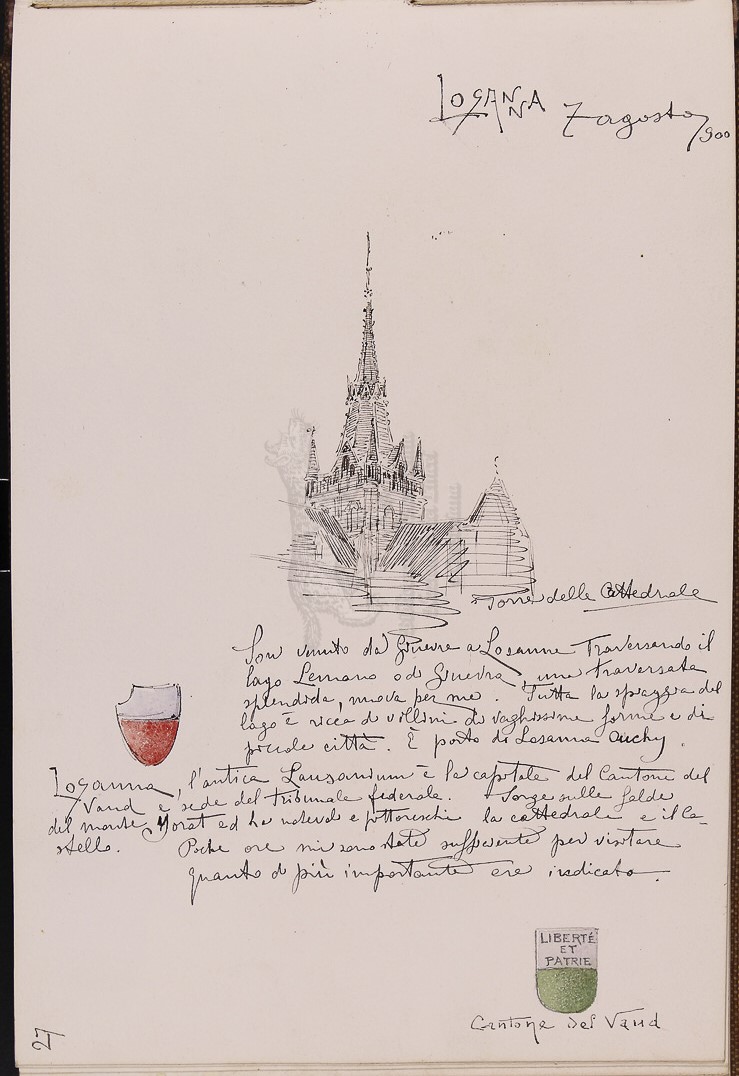 LOSANNA 7 agosto 900
Torre della Cattedrale
Son venuto da Ginevra a Losanna traversando il
lago Lemano o di Ginevra, una traversata
splendida, nuova per me. Tutta la spiaggia del
lago è ricca di villini di vaghissime forme e di
piccole città. È porto di Losanna Ouchy.
Losanna, l'antica Lausanium è la capitale del Cantone del
Vaud e sede del tribunale federale. Sorge sulle falde
del monte Jorat ed ha notevoli e pittoreschi la cattedrale e il Ca-
stello. Poche ore mi sono state sufficienti per visitare
quanto di più importante era indicato.
LIBERTÉ
ET
PATRIE
Cantone del Vaud
27